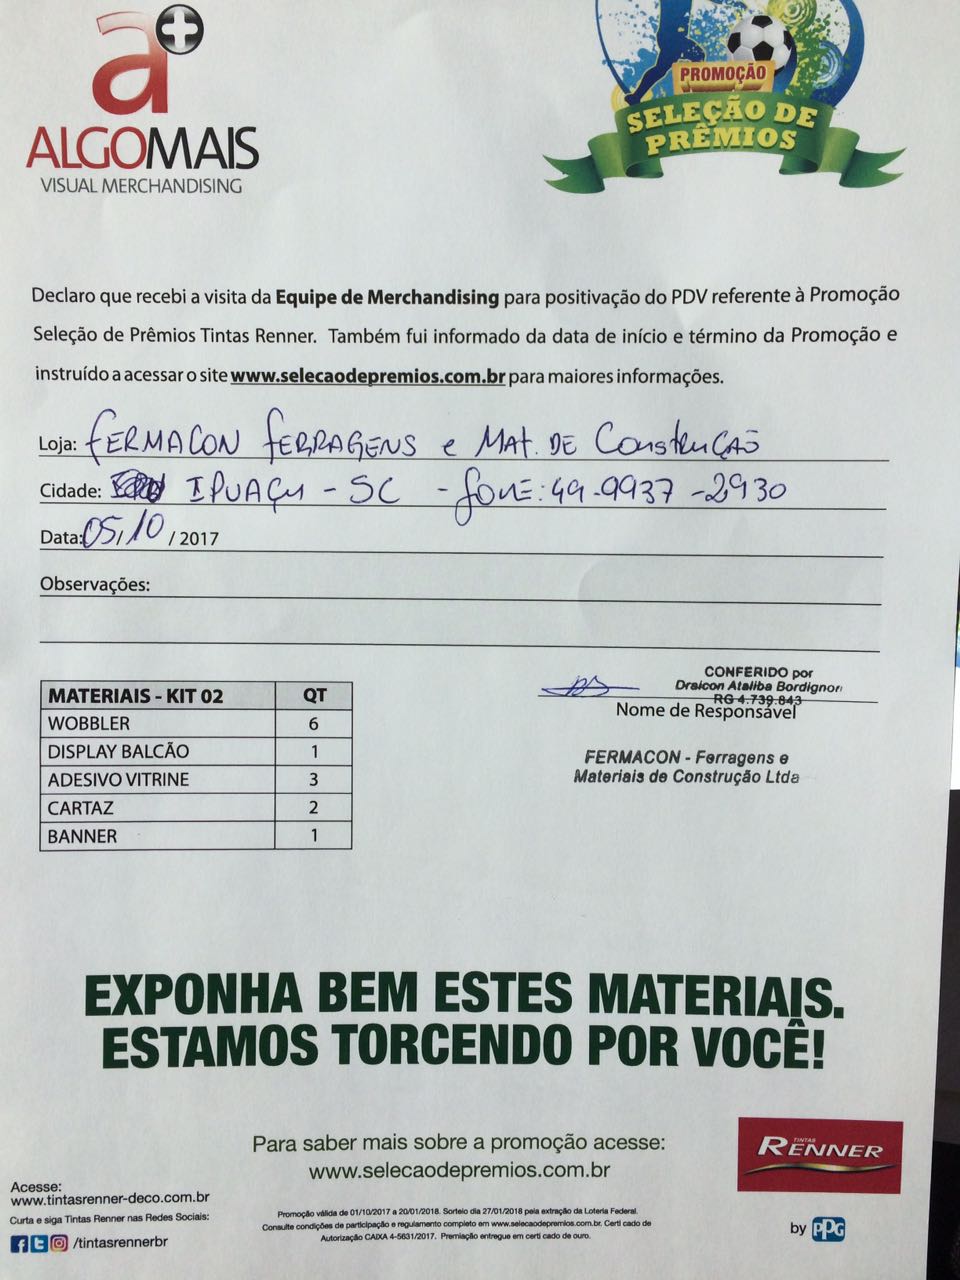 a+
ALGOMAIS
VISUAL MERCHANDISING
PROMOÇÃO
SELEÇÃO DE
PRÊMIOS
Declaro que recebi a visita da Equipe de Merchandising para positivação do PDV referente à Promoção
Seleção de Prêmios Tintas Renner. Também fui informado da data de início e término da Promoção e
instruído a acessar o site www.selecaodepremios.com.br para maiores informações.
Loja: FERMACON FERRAGENS e MAT. DE CONSTRUÇÃO
Cidade: IPUAÇU - SC - FONE: 49-9937-2930
Data: 05/10 / 2017
Observações:
MATERIAIS - KIT 02 QT
WOBBLER 6
DISPLAY BALCÃO 1
ADESIVO VITRINE 3
CARTAZ 2
BANNER 1
CONFERIDO por
Draicon Ataliba Bordignon
RG 4.739.843
Nome de Responsável
FERMACON - Ferragens e
Materiais de Construção Ltda
EXPONHA BEM ESTES MATERIAIS.
ESTAMOS TORCENDO POR VOCÊ!
Para saber mais sobre a promoção acesse:
www.selecaodepremios.com.br
TINTAS
RENNER
Acesse:
www.tintasrenner-deco.com.br
Curta e siga Tintas Renner nas Redes Sociais:
/tintasrennerbr
Promoção válida de 01/10/2017 a 20/01/2018. Sorteio dia 27/01/2018 pela extração da Loteria Federal.
Consulte condições de participação e regulamento completo em www.selecaodepremios.com.br. Certi cado de
Autorização CAIXA 4-5631/2017. Premiação entregue em certi cado de ouro.
by PPG